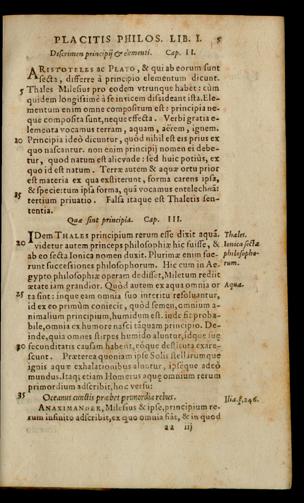 PLACITIS PHILOS. LIB. I. 5
Discrimen principij & elementi. Cap. II.
ARISTOTELES ac PLATO, & qui ab eorum sunt
secta, differre à principio elementum dicunt.
5 Thales Milesius pro eodem vtrunque habet: cùm
quidem longissimè à se inuicem dissideant ista. Ele-
mentum enim omne compositum est: principia ne-
que composita sunt, neque effecta. Verbi gratia e-
lementa vocamus terram, aquam, aërem, ignem.
10 Principia ideo dicuntur, quòd nihil est eis prius ex
quo nascantur. non enim principij nomen ei debe-
tur, quod natum est aliunde: sed huic potiùs, ex
quo id est natum. Terræ autem & aquæ ortu prior
est materia ex qua exstiterunt, forma carens ipsa,
15 & specie: tum ipsa forma, quã vocamus entelecheiã:
tertium priuatio. Falsa itaque est Thaletis sen-
tentia.
Quæ sint principia. Cap. III.
IDem THALES principium rerum esse dixit aquã. Thales.
20 videtur autem princeps philosophiæ hic fuisse, & Ionica sectæ
ab eo secta Ionica nomen duxit. Plurimæ enim fue- philosopho-
runt successiones philosophorum. Hic cum in Ae- rum.
gypto philosophiæ operam dedisset, Miletum rediit
ætate iam grandior. Quòd autem ex aqua omnia or Aqua.
25 ta sint: inque eam omnia suo interitu resoluantur,
id ex eo primùm coniecit, quòd semen, omnium a-
nimalium principium, humidum est. inde fit proba-
bile, omnia ex humore nasci tãquam principio. De-
inde, quia omnes stirpes humido aluntur, idque suę
30 fecunditatis causam habent, eoque destituta exare-
scunt. Præterea quoniam ipse Solis stellarumque
ignis aquæ exhalationibus aluntur, ipseque adeò
mundus. Itaque etiam Homerus aquę omnium rerum
primordium adscribit, hoc versu:
35 Oceanus cunctis præbet primordia rebus. Ilia. ξ. 246.
ANAXIMANDER, Milesius & ipse, principium re-
rum infinito adscribit, ex quo omnia fiãt, & in quod
aa iij